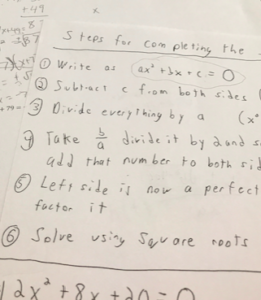 +49
x
Steps for completing the
① Write as ax² + bx + c = 0
② Subtract c from both sides (
③ Divide everything by a (x²
④ Take b/a divide it by 2 and s
add that number to both sid
⑤ Left side is now a perfect
factor it
⑥ Solve using Square roots
2x² + 8x + 20 = 0